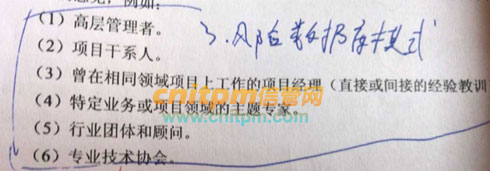 例如：
（1）高层管理者。
3、风险数据
（2）项目干系人。
（3）曾在相同领域项目上工作的项目经理（直接或间接的经验教训
cnitpm信管网
（4）特定业务或项目领域的主题专家。
www.cnitpm.com
（5）行业团体和顾问。
（6）专业技术协会。